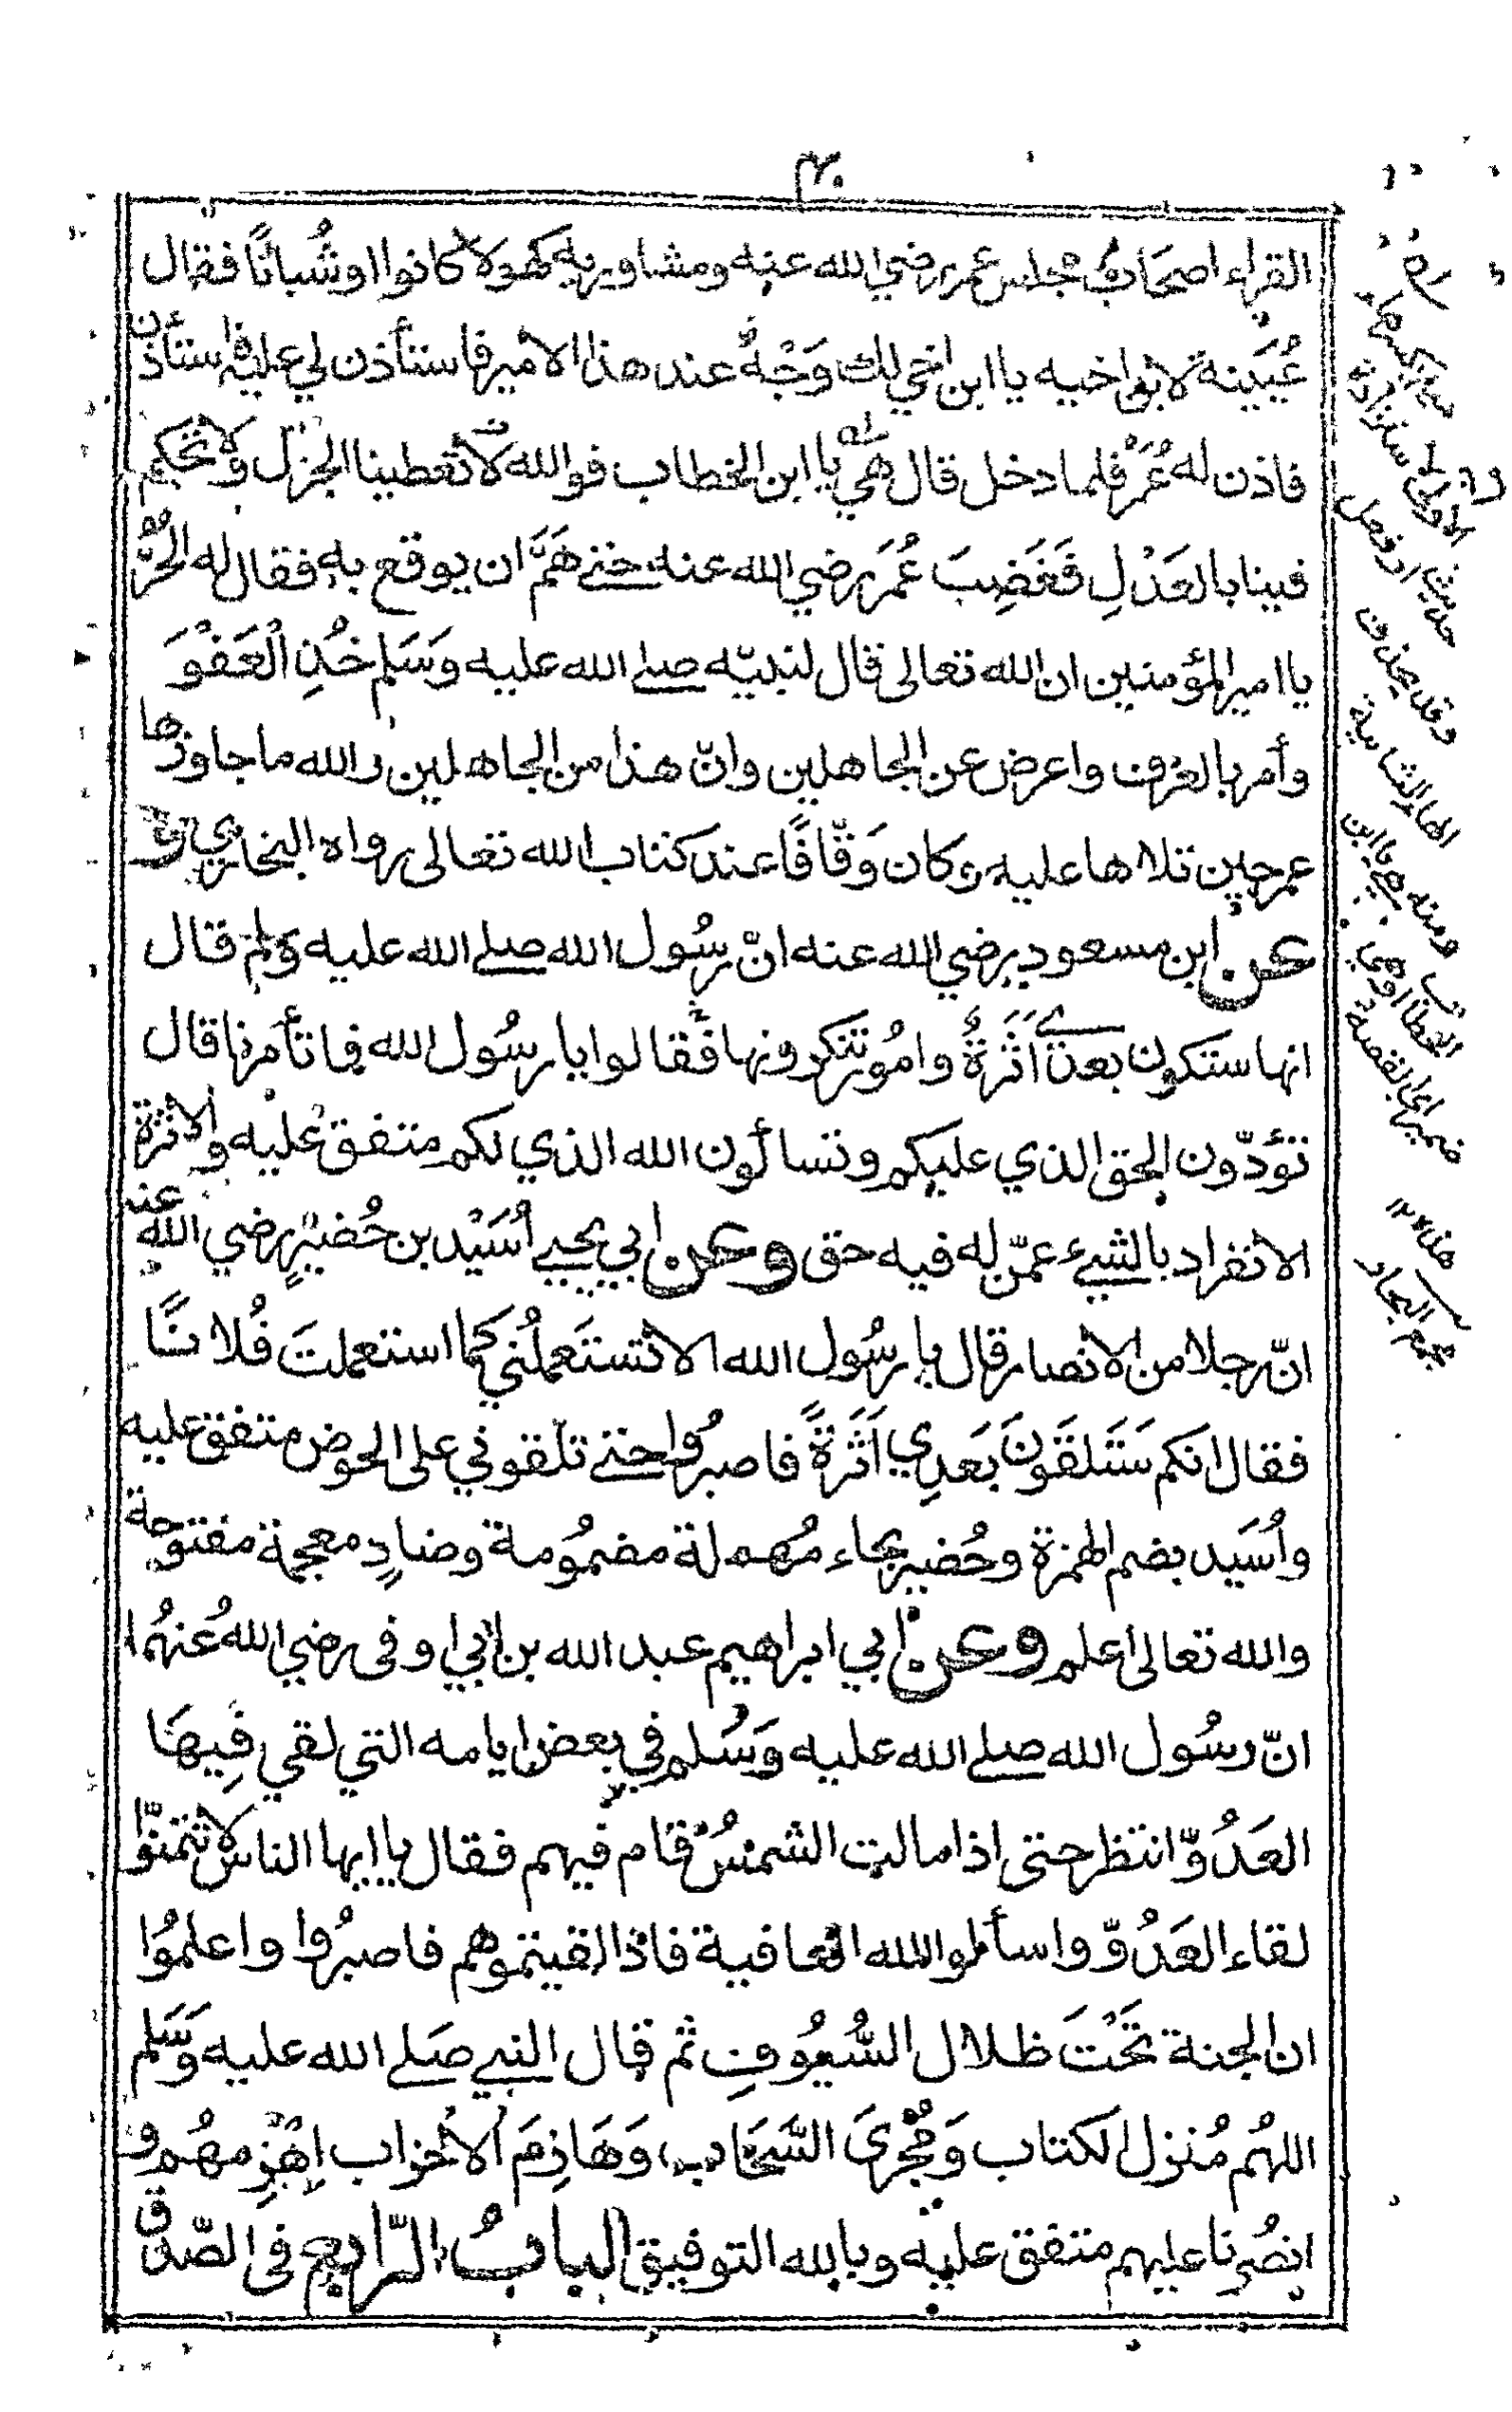 ٣٠
القراء اصحاب مجلس عمر رضي الله عنه ومشاوريه كهولا كانوا او شُبانًا فقال
عُيَينة لابن اخيه يا ابن اخي لك وَجْهٌ عند هذا الامير فاستأذن لي عليه فاستأذن
فاذن له عُمَرُ فلما دخل قال هِي يا ابن الخطاب فوالله لا تعطينا الجزل ولا تحكم
فينا بالعَدْلِ فَغَضِبَ عُمَر رضي الله عنه حتى هَمَّ ان يوقع به فقال له الحُرُّ
يا امير المؤمنين ان الله تعالى قال لنبيّه صلى الله عليه وَسَلم خُذِ الْعَفْوَ
وأمر بالعُرف واعرض عن الجاهلين وانّ هذا من الجاهلين والله ما جاوزها
عمر حين تلاها عليه وكان وَقّافًا عند كتاب الله تعالى رواه البخاري و
عن ابن مسعود رضي الله عنه انّ رسُول الله صلى الله عليه وسلم قال
انها ستكون بعدي اَثَرَةٌ وامُور تنكرونها فقالوا يا رسُول الله فما تأمرنا قال
تؤدّون الحق الذي عليكم وتسألون الله الذي لكم متفق عليه والاثرة
الانفراد بالشيء عمّن له فيه حق وعن ابي يحيى أُسَيْد بن حُضيرٍ رضي الله عنه
انّ رجلا من الانصار قال يا رسُول الله الا تستَعملُني كما استعملتَ فُلانًا
فقال انكم سَتَلقَونَ بَعدِي اَثَرَةً فاصبرُوا حتى تلقوني على الحوض متفق عليه
واُسَيد بضم الهمزة وحُضير بحاء مُهملة مضمُومة وضادٍ معجمة مفتوحة
والله تعالى اعلم وعن ابي ابراهيم عبد الله بن ابي اوفى رضي اللهُ عنهُما
انّ رسُول الله صلى الله عليه وَسَلم في بعض ايامه التي لقي فِيهَا
العَدُوّ انتظر حتى اذا مالت الشمسُ قام فيهم فقال يا ايها الناس لا تتمنّوا
لقاء العَدُوّ واسألوا الله العافية فاذا لقيتموهم فاصبرُوا واعلموُا
ان الجنة تَحْتَ ظلال السُّيُوفِ ثم قال النبي صَلى الله عليه وَسَلم
اللهُم مُنزل الكتاب وَمُجْرِىَ السَّحَاب وَهَازِمَ الأحزاب اِهْزِمهُم و
انصُرنا عليهم متفق عليه وبالله التوفيق البابُ الرّابع فى الصّدق
الاولى
وقد يحذف
الهاء الثانية
ومنه هي يا ابن
الخطاب
مجمع البحار